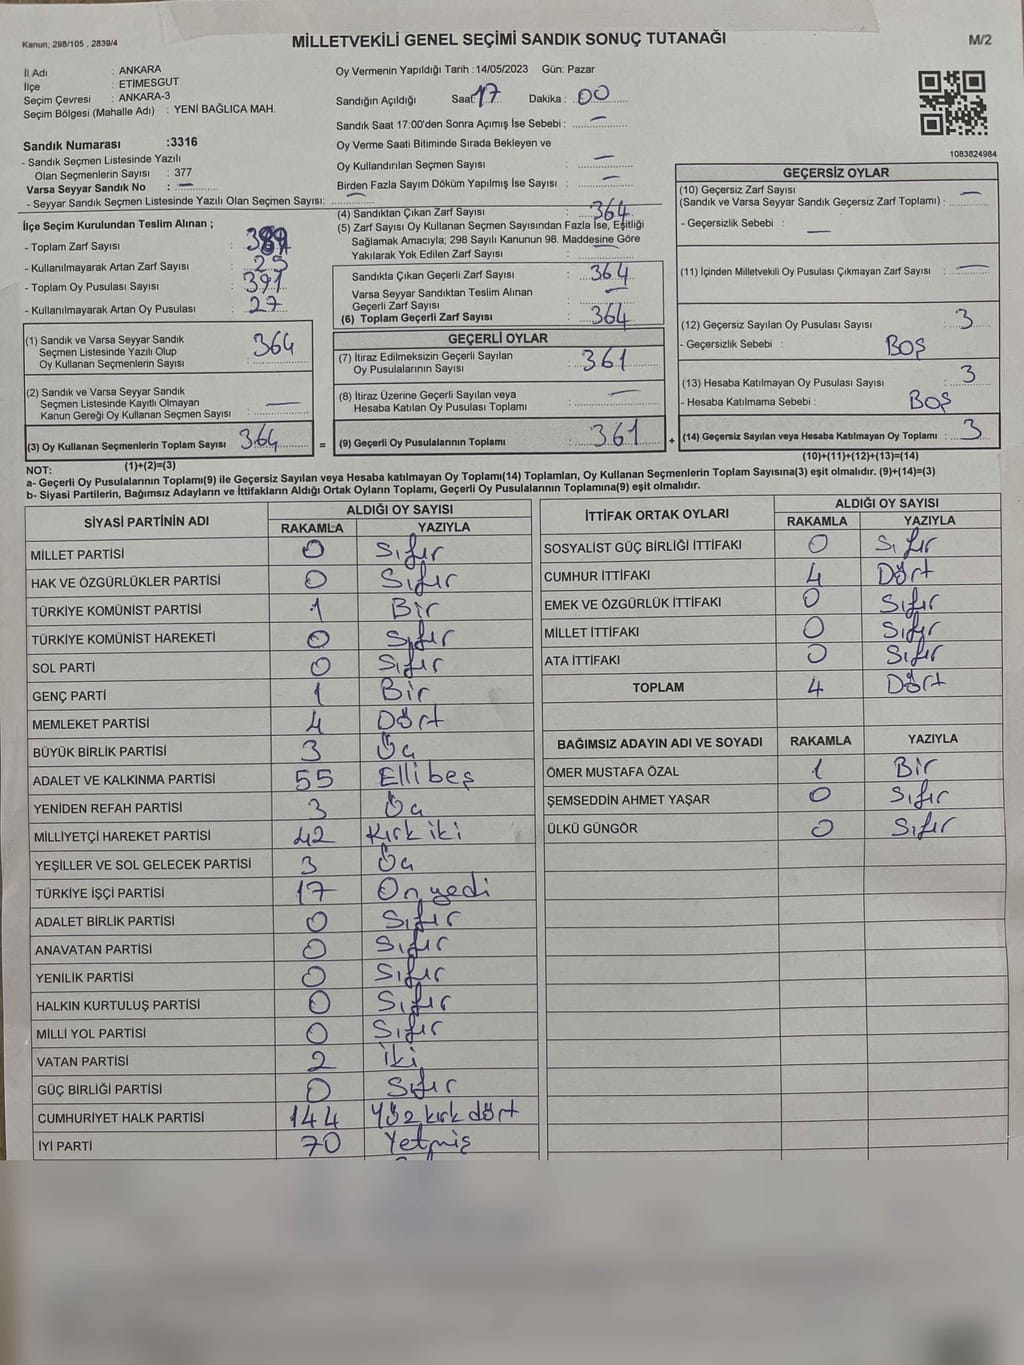 Kanun: 298/105 , 2839/4
MİLLETVEKİLİ GENEL SEÇİMİ SANDIK SONUÇ TUTANAĞI
M/2
İl Adı : ANKARA
İlçe : ETİMESGUT
Seçim Çevresi : ANKARA-3
Seçim Bölgesi (Mahalle Adı) : YENİ BAĞLICA MAH.
Sandık Numarası :3316
- Sandık Seçmen Listesinde Yazılı
Olan Seçmenlerin Sayısı : 377
Varsa Seyyar Sandık No : —
- Seyyar Sandık Seçmen Listesinde Yazılı Olan Seçmen Sayısı: —
Oy Vermenin Yapıldığı Tarih :14/05/2023 Gün: Pazar
Sandığın Açıldığı Saat 17 Dakika : 00
Sandık Saat 17:00'den Sonra Açımış İse Sebebi : —
Oy Verme Saati Bitiminde Sırada Bekleyen ve
Oy Kullandırılan Seçmen Sayısı : —
Birden Fazla Sayım Döküm Yapılmış İse Sayısı : —
1083824984
İlçe Seçim Kurulundan Teslim Alınan ;
- Toplam Zarf Sayısı :
- Kullanılmayarak Artan Zarf Sayısı : 25
- Toplam Oy Pusulası Sayısı : 391
- Kullanılmayarak Artan Oy Pusulası : 27
(1) Sandık ve Varsa Seyyar Sandık
Seçmen Listesinde Yazılı Olup
Oy Kullanan Seçmenlerin Sayısı : 364
(2) Sandık ve Varsa Seyyar Sandık
Seçmen Listesinde Kayıtlı Olmayan
Kanun Gereği Oy Kullanan Seçmen Sayısı : —
(3) Oy Kullanan Seçmenlerin Toplam Sayısı 364
(1)+(2)=(3)
(4) Sandıktan Çıkan Zarf Sayısı : 364
(5) Zarf Sayısı Oy Kullanan Seçmen Sayısından Fazla İse, Eşitliği
Sağlamak Amacıyla; 298 Sayılı Kanunun 98. Maddesine Göre
Yakılarak Yok Edilen Zarf Sayısı : —
Sandıkta Çıkan Geçerli Zarf Sayısı : 364
Varsa Seyyar Sandıktan Teslim Alınan
Geçerli Zarf Sayısı : —
(6) Toplam Geçerli Zarf Sayısı : 364
GEÇERLİ OYLAR
(7) İtiraz Edilmeksizin Geçerli Sayılan
Oy Pusulalarının Sayısı : 361
(8) İtiraz Üzerine Geçerli Sayılan veya
Hesaba Katılan Oy Pusulası Toplamı : —
= (9) Geçerli Oy Pusulalarının Toplamı : 361
GEÇERSİZ OYLAR
(10) Geçersiz Zarf Sayısı
(Sandık ve Varsa Seyyar Sandık Geçersiz Zarf Toplamı) : —
- Geçersizlik Sebebi : —
(11) İçinden Milletvekili Oy Pusulası Çıkmayan Zarf Sayısı : —
(12) Geçersiz Sayılan Oy Pusulası Sayısı : 3
- Geçersizlik Sebebi : BOŞ
(13) Hesaba Katılmayan Oy Pusulası Sayısı : 3
- Hesaba Katılmama Sebebi : BOŞ
+ (14) Geçersiz Sayılan veya Hesaba Katılmayan Oy Toplamı : 3
(10)+(11)+(12)+(13)=(14)
NOT:
a- Geçerli Oy Pusulalarının Toplamı(9) ile Geçersiz Sayılan veya Hesaba katılmayan Oy Toplamı(14) Toplamları, Oy Kullanan Seçmenlerin Toplam Sayısına(3) eşit olmalıdır. (9)+(14)=(3)
b- Siyasi Partilerin, Bağımsız Adayların ve İttifakların Aldığı Ortak Oyların Toplamı, Geçerli Oy Pusulalarının Toplamına(9) eşit olmalıdır.
SİYASİ PARTİNİN ADI ALDIĞI OY SAYISI
RAKAMLA YAZIYLA
MİLLET PARTİSİ 0 Sıfır
HAK VE ÖZGÜRLÜKLER PARTİSİ 0 Sıfır
TÜRKİYE KOMÜNİST PARTİSİ 1 Bir
TÜRKİYE KOMÜNİST HAREKETİ 0 Sıfır
SOL PARTİ 0 Sıfır
GENÇ PARTİ 1 Bir
MEMLEKET PARTİSİ 4 Dört
BÜYÜK BİRLİK PARTİSİ 3 Üç
ADALET VE KALKINMA PARTİSİ 55 Elli beş
YENİDEN REFAH PARTİSİ 3 Üç
MİLLİYETÇİ HAREKET PARTİSİ 42 Kırk iki
YEŞİLLER VE SOL GELECEK PARTİSİ 3 Üç
TÜRKİYE İŞÇİ PARTİSİ 17 On yedi
ADALET BİRLİK PARTİSİ 0 Sıfır
ANAVATAN PARTİSİ 0 Sıfır
YENİLİK PARTİSİ 0 Sıfır
HALKIN KURTULUŞ PARTİSİ 0 Sıfır
MİLLİ YOL PARTİSİ 0 Sıfır
VATAN PARTİSİ 2 İki
GÜÇ BİRLİĞİ PARTİSİ 0 Sıfır
CUMHURİYET HALK PARTİSİ 144 Yüz kırk dört
İYİ PARTİ 70 Yetmiş
İTTİFAK ORTAK OYLARI ALDIĞI OY SAYISI
RAKAMLA YAZIYLA
SOSYALİST GÜÇ BİRLİĞİ İTTİFAKI 0 Sıfır
CUMHUR İTTİFAKI 4 Dört
EMEK VE ÖZGÜRLÜK İTTİFAKI 0 Sıfır
MİLLET İTTİFAKI 0 Sıfır
ATA İTTİFAKI 0 Sıfır
TOPLAM 4 Dört
BAĞIMSIZ ADAYIN ADI VE SOYADI RAKAMLA YAZIYLA
ÖMER MUSTAFA ÖZAL 1 Bir
ŞEMSEDDİN AHMET YAŞAR 0 Sıfır
ÜLKÜ GÜNGÖR 0 Sıfır